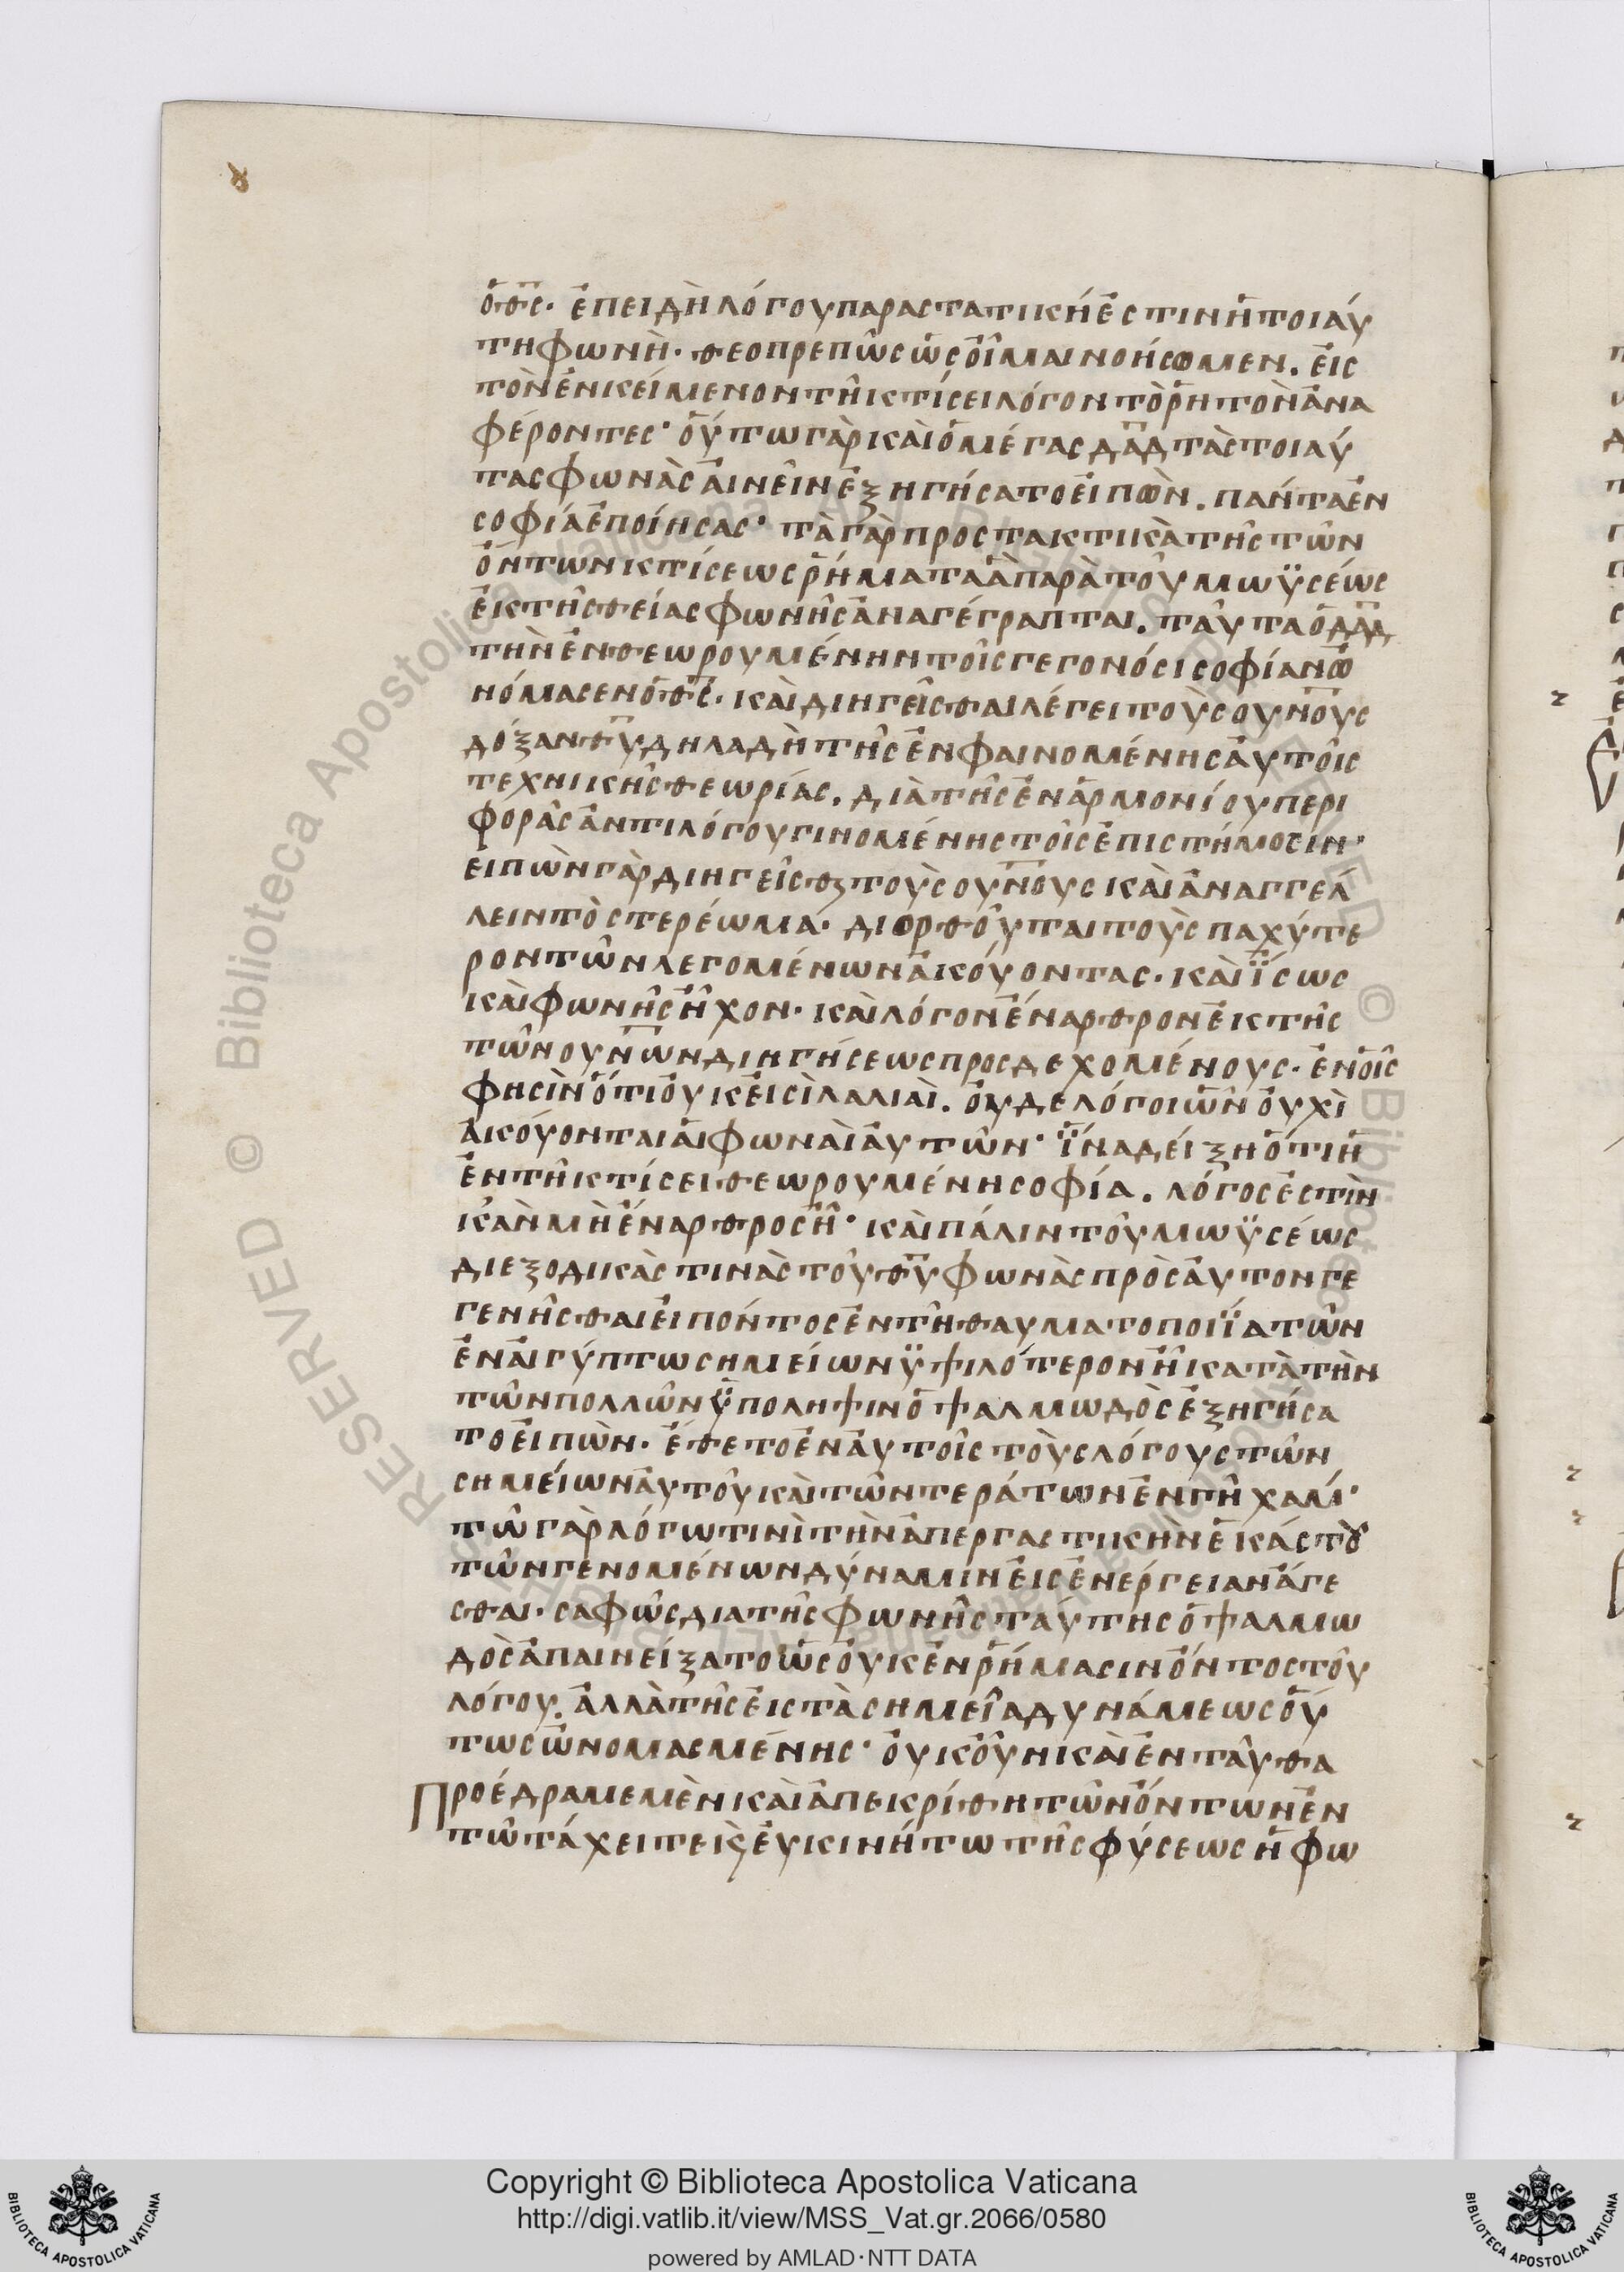 ὁ θ̅ς̅· ἐπειδὴ λόγου παραστατική ἐστιν ἡ τοιαύ
τη φωνὴ· θεοπρεπῶς ὡς οἶμαι νοήσωμεν. εἰς
τὸν ἐνκείμενον τῆ κτίσει λόγον τὸ ῥητὸν ἀνα
φέροντες· οὕτω γὰρ καὶ ὁ μέγας δ̅α̅δ̅ τὰς τοιαύ
τας φωνὰς αἰνεῖν ἐξηγήσατο εἰπὼν. πάντα ἐν
σοφία ἐποίησας· τὰ γὰρ προστακτικὰ τῆς τῶν
ὄντων κτίσεως ῥήματα ἃ παρὰ τοῦ μωϋσέως
ἐκ τῆς θείας φωνῆς ἀναγέγραπται. ταῦτα ὁ δ̅α̅δ̅
τὴν ἐνθεωρουμένην τοῖς γεγονόσι σοφίαν ὠ
νόμασεν ὁ θ̅ς̅· καὶ διηγεῖσθαι λέγει τοὺς ου̅ν̅ους
δόξαν θ̅υ̅ δηλαδὴ τῆς ἐνφαινομένης αὐτοῖς
τεχνικῆς θεωρίας. διὰ τῆς ἐναρμονίου περι
φορᾶς ἀντι λόγου γινομένης τοῖς ἐπιστήμοσιν·
εἰπὼν γὰρ διηγεῖσθαι τοὺς ου̅ν̅ους καὶ ἀναγγέλ
λειν τὸ στερέωμα· διορθοῦται τοὺς παχύτε
ρον τῶν λεγομένων ἀκούοντας· καὶ ἴσως
καὶ φωνῆς ἦχον· καὶ λόγον ἔναρθρον ἐκ τῆς
τῶν ου̅ν̅ων διηγήσεως προσδεχομένους· ἐν οἷς
φησὶν ὅτι οὐκ εἰσὶ λαλιαὶ. οὐδε λόγοι ὧν οὐχὶ
ἀκούονται αἱ φωναὶ αὐτῶν· ἵνα δείξη ὅτι ἡ
ἐν τῆ κτίσει θεωρουμένη σοφία. λόγος ἐστὶν
κἂν μὴ ἔναρθρος ἦ· καὶ πάλιν τοῦ μωϋσέως
διεξοδικὰς τινὰς τοῦ θ̅υ̅ φωνὰς πρὸς αὐτον γε
γενῆσθαι εἰπόντος ἐν τῆ θαυματοποιΐα τῶν
ἐν αἰγύπτω σημείων ὑψιλότερον ἢ κατὰ τὴν
τῶν πολλῶν ὑποληψιν ὁ ψαλμωδὸς ἐξηγήσα
το εἰπὼν· ἔθετο ἐν αὐτοῖς τοὺς λόγους τῶν
σημείων αὐτοῦ καὶ τῶν τεράτων ἐν γῆ χαμ·
τῶ γὰρ λόγω τινὶ τὴν ἀπεργαστικὴν ἑκάστου
τῶν γενομένων δύναμιν εἰς ἐνέργειαν ἄγε
σθαι· σαφῶς δια τῆς φωνῆς ταύτης ὁ ψαλμω
δὸς ἀπαινείξατο ὡς οὐκ ἐν ῥήμασιν ὄντος τοῦ
λόγου. ἀλλὰ τῆς εἰς τὰ σημεῖα δυνάμεως οὕ
τως ὠνομασμένης· οὐκ οῦν καὶ ἐνταῦθα
Προέδραμε μὲν καὶ ἀπεκρίθη τῶν ὄντων ἐν
τῶ τάχει τε κ̀ εὐκινήτω τῆς φύσεως ἡ φω
Copyright © Biblioteca Apostolica Vaticana
http://digi.vatlib.it/view/MSS_Vat.gr.2066/0580
powered by AMLAD·NTT DATA
BIBLIOTECA APOSTOLICA VATICANA
BIBLIOTECA APOSTOLICA VATICANA